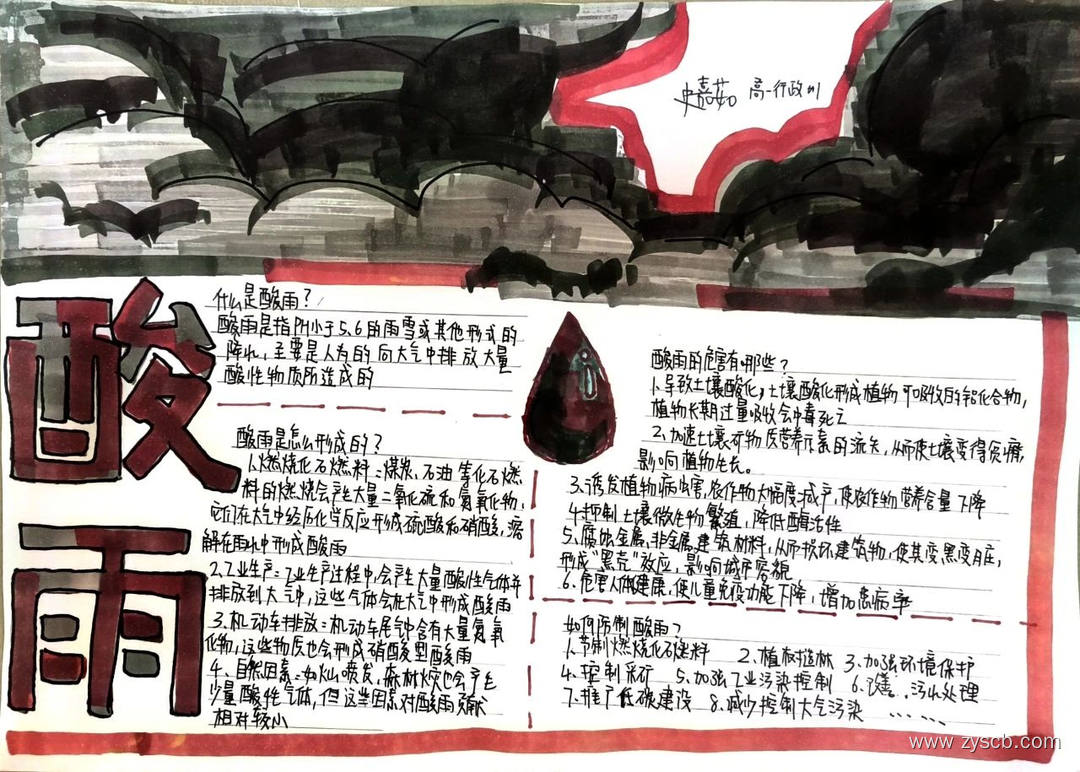 史嘉茹 高一行政川
酸雨
什么是酸雨?
酸雨是指PH小于5.6的雨雪或其他形式的
降水,主要是人为的向大气中排放大量
酸性物质所造成的
酸雨是怎么形成的?
1.燃烧化石燃料:煤炭,石油等化石燃
料的燃烧会产生大量二氧化硫和氮氧化物,
它们在大气中经历化学反应形成硫酸和硝酸,溶
解在雨水中形成酸雨
2.工业生产:工业生产过程中,会产生大量酸性气体并
排放到大气中,这些气体会在大气中形成酸雨
3.机动车排放:机动车尾气中含有大量氮氧
化物,这些物质也会形成硝酸型酸雨
4、自然因素:如火山喷发,森林火灾也会产生
少量酸性气体,但这些因素对酸雨贡献
相对较小
酸雨的危害有哪些?
1.导致土壤酸化,土壤酸化形成植物可吸收的铝化合物,
植物长期过量吸收会中毒死亡
2.加速土壤矿物质营养元素的流失,从而使土壤变得贫瘠,
影响植物生长。
3.诱发植物病虫害,农作物大幅度减产,使农作物营养含量下降
4.抑制土壤微生物繁殖,降低酶活性
5.腐蚀金属,非金属建筑材料,从而损坏建筑物,使其变黑变脏,
形成“黑壳”效应,影响城市容貌
6.危害人体健康,使儿童免疫功能下降,增加患病率
如何防制酸雨?
1.节制燃烧化石燃料 2.植树造林 3.加强环境保护
4.控制采矿 5.加强工业污染控制 6.改善污水处理
7.推广低碳建设 8.减少控制大气污染 ……
www.zyscb.com